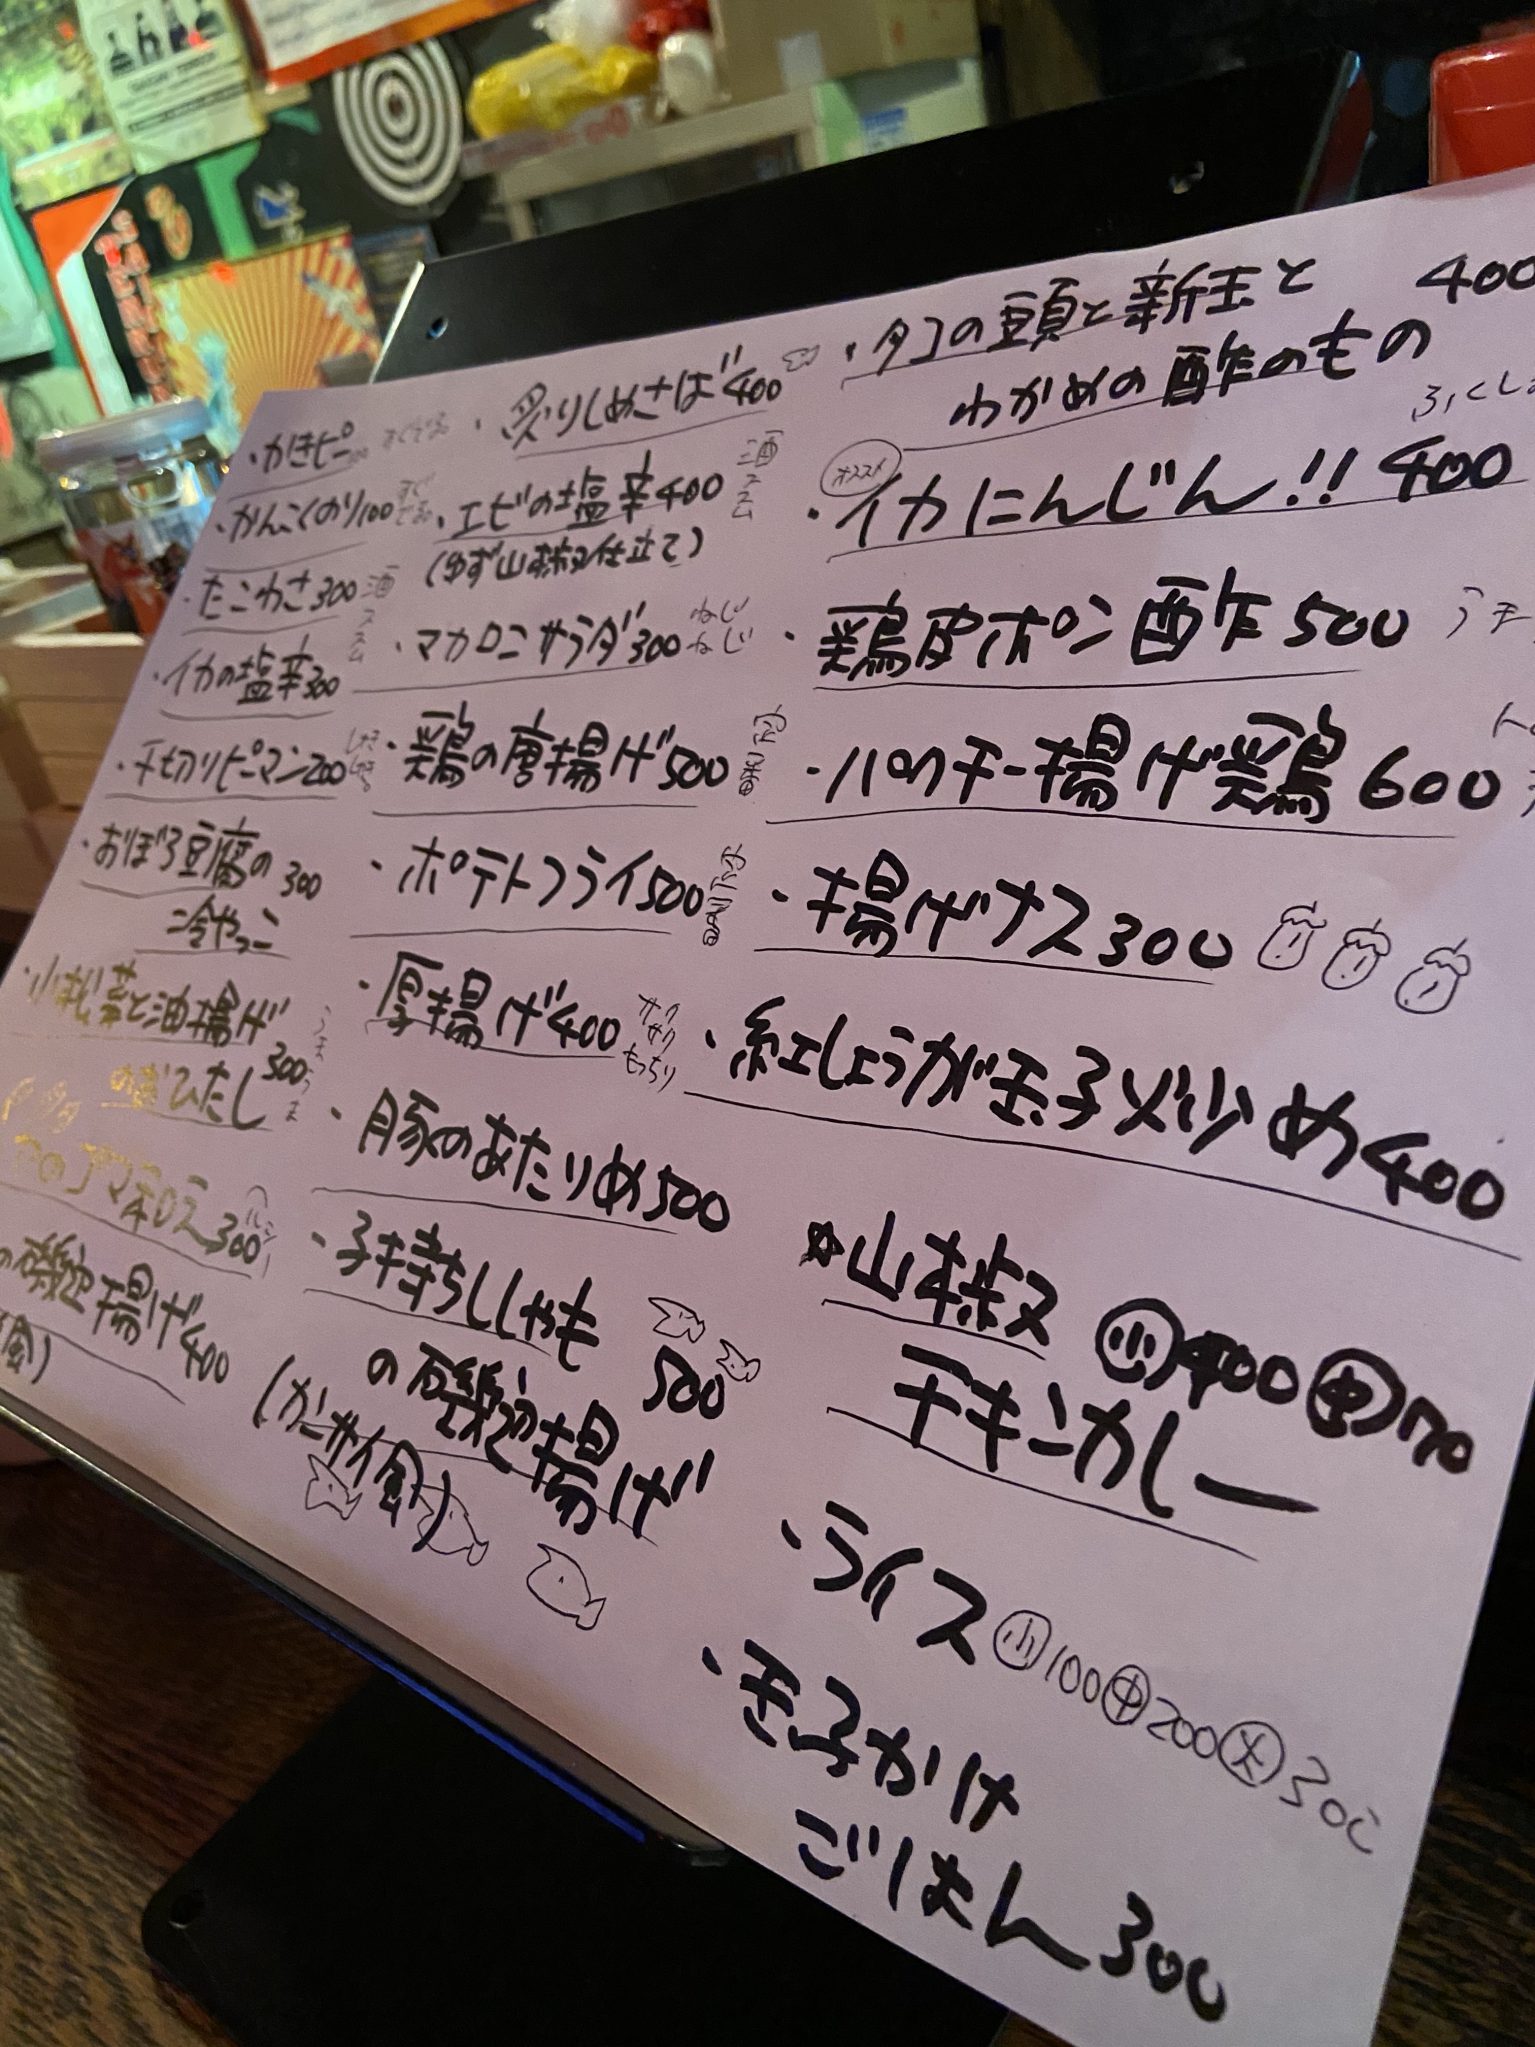 ・かきピー
・かんこくのり100
・たこわさ300
酒ススム
・イカの塩辛300
・千切りピーマン200
・おぼろ豆腐の300
冷やっこ
・小松菜と油揚げ
のおひたし300
のゴマ和え300
の磯辺揚げ400
・炙りしめさば400
・エビの塩辛400
(ゆず山椒仕立て)
酒ススム
・マカロニサラダ300
ねじねじ
・鶏の唐揚げ500
定番
・ポテトフライ500
・厚揚げ400
サクサクもっちり
・豚のあたりめ500
・子持ちししゃも
の磯辺揚げ500
(カンサイ風)
・タコの頭と新玉と
わかめの酢のもの400
オススメ
・イカにんじん!!400
・鶏皮ポン酢500
・パクチー揚げ鶏600
・揚げナス300
・紅しょうが玉子炒め400
山椒
チキンカレー
小400中70
・ライス小100中200大300
・玉子かけ
ごはん300